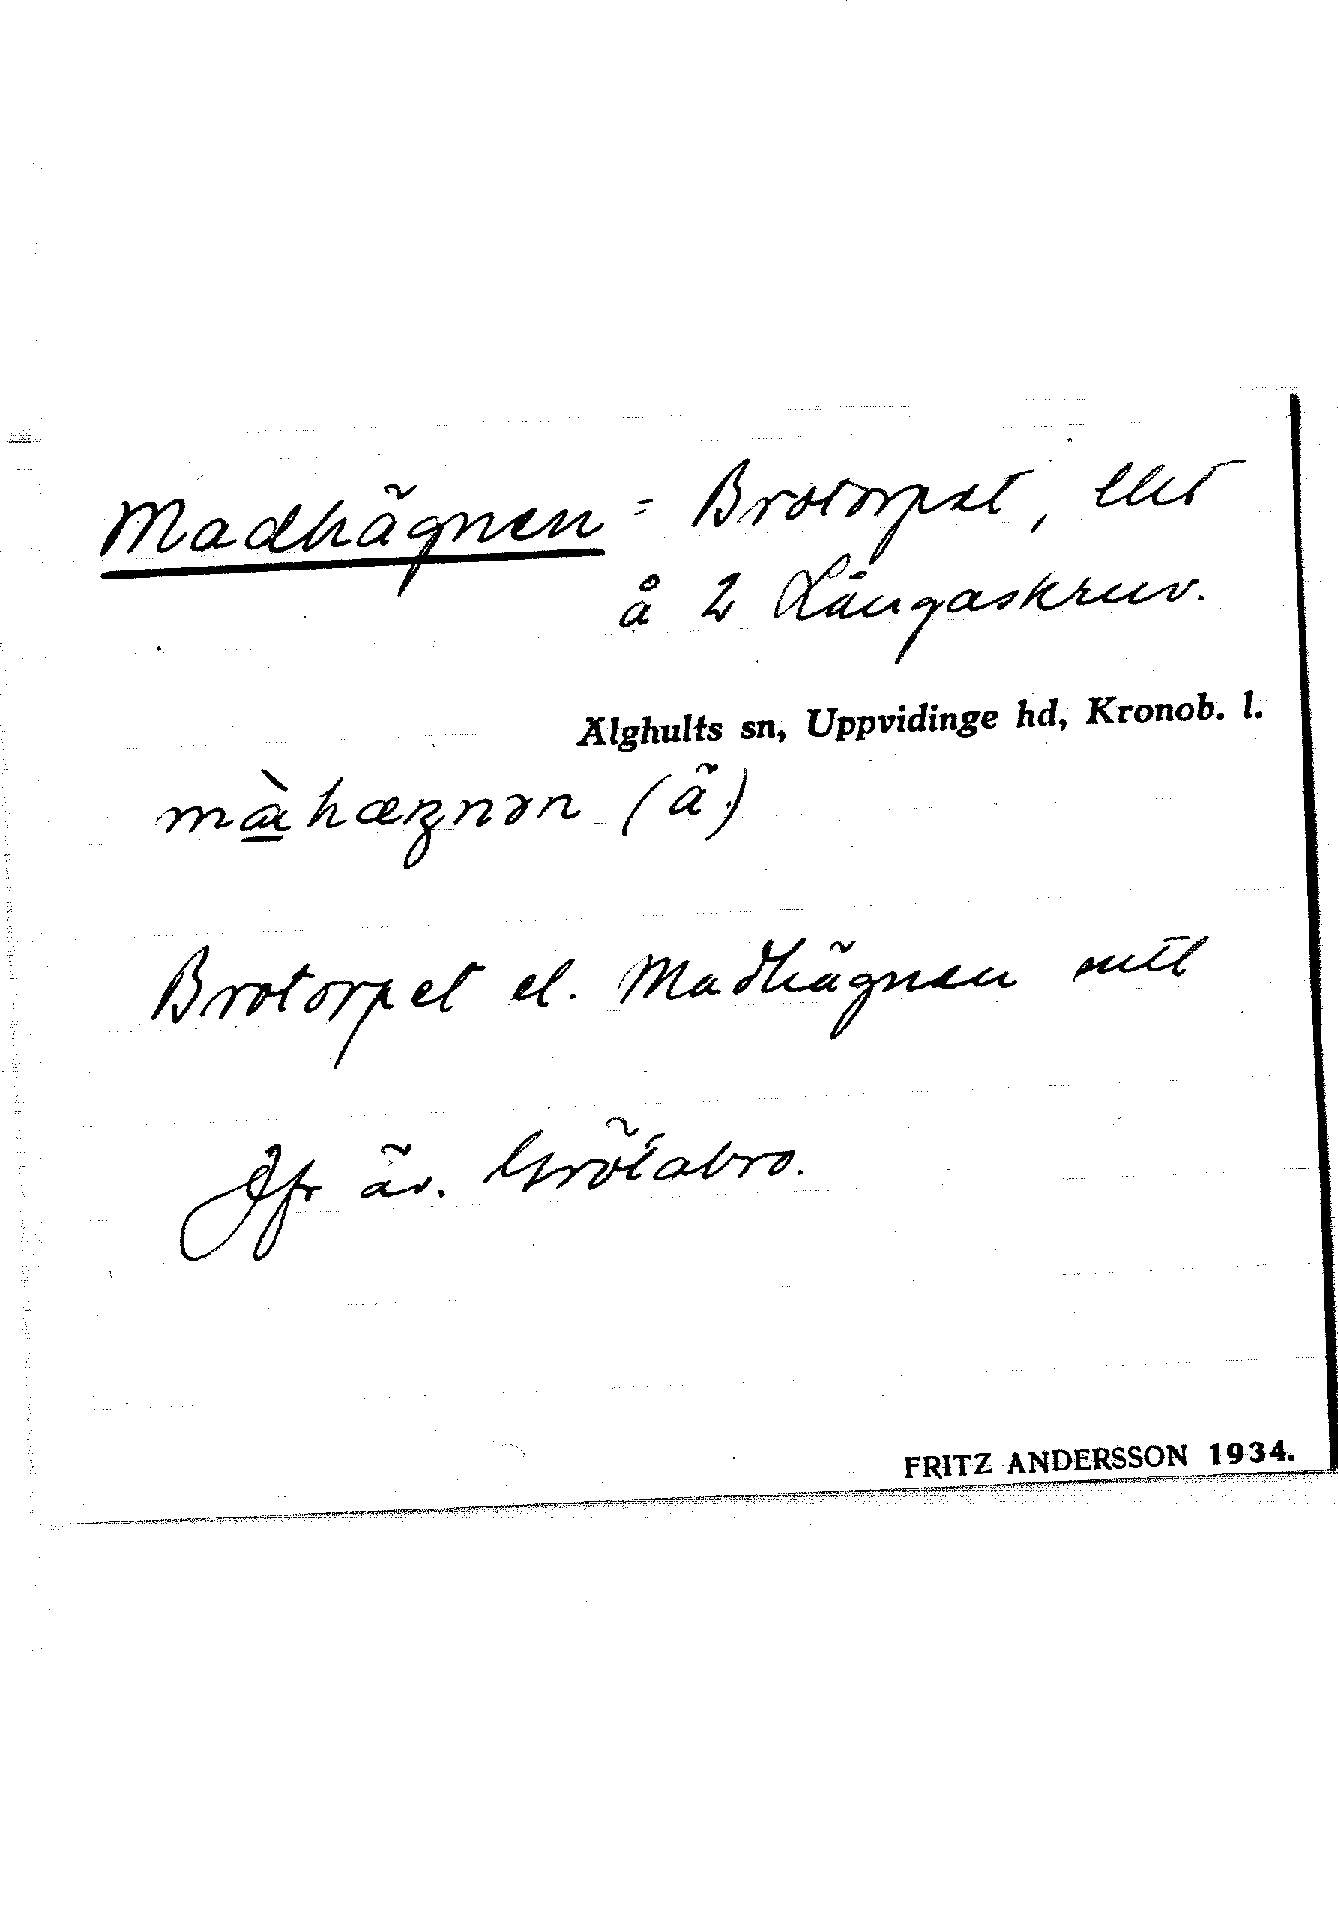 Madhägnen = Brotorpet, lht
å 2 Långaskruv.
Älghults sn, Uppvidinge hd, Kronob. l.
màhæꞬnən (ä.)
Brotorpet el. Madhägnen
Jfr äv. Grötabro.
FRITZ ANDERSSON 1934.